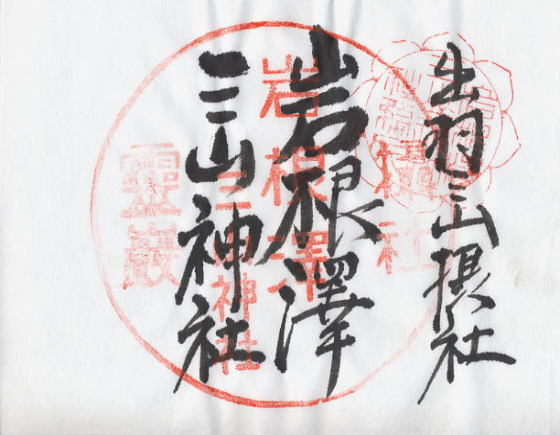 出羽三山摂社
岩根澤
三山神社
岩根澤
三山神社
靈巌